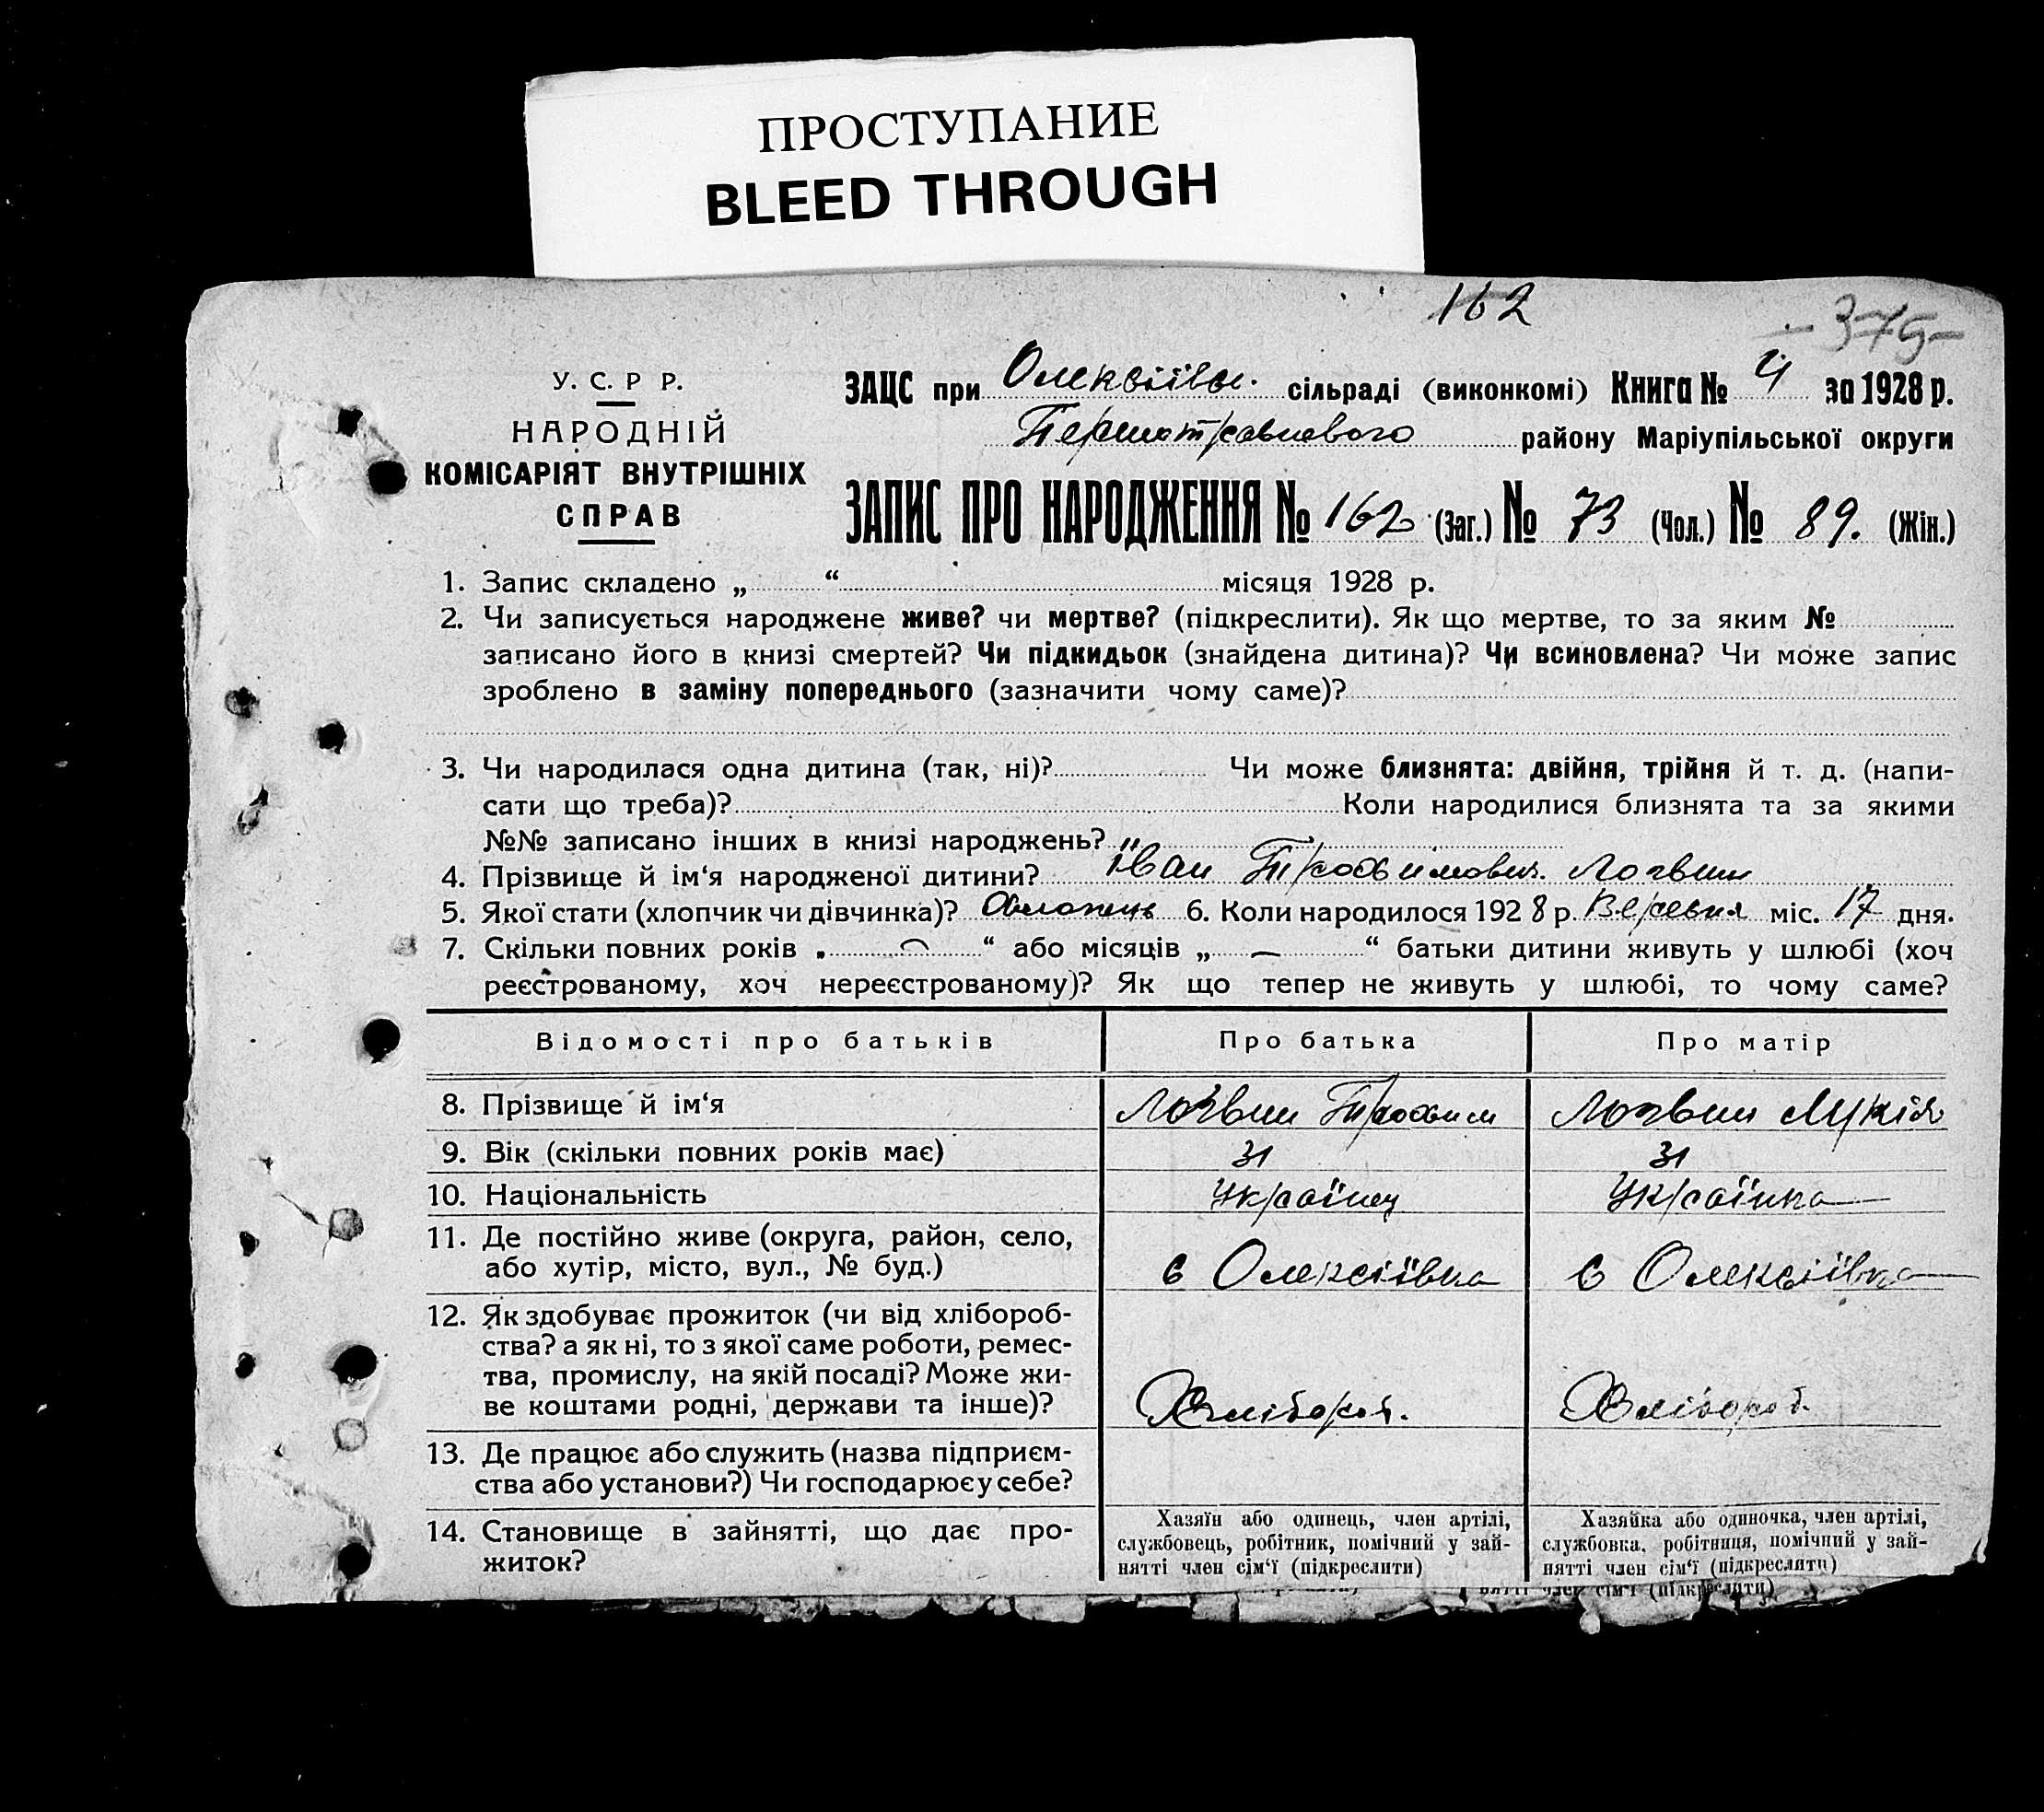 ПРОСТУПАНИЕ
BLEED THROUGH
162
-375-
У. С. Р Р.
НАРОДНІЙ
КОМІСАРІЯТ ВНУТРІШНІХ
СПРАВ
ЗАЦС при Олексіївс. сільраді (виконкомі) Книга № 4 за 1928 р.
Першотравневого району Маріупільської округи
ЗАПИС ПРО НАРОДЖЕННЯ № 162 (Заг.) № 73 (Чол.) № 89. (Жін.)
1. Запис складено „ “ місяця 1928 р.
2. Чи записується народжене живе? чи мертве? (підкреслити). Як що мертве, то за яким №
записано його в книзі смертей? Чи підкидьок (знайдена дитина)? Чи всиновлена? Чи може запис
зроблено в заміну попереднього (зазначити чому саме)?
3. Чи народилася одна дитина (так, ні)? Чи може близнята: двійня, трійня й т. д. (напи-
сати що треба)? Коли народилися близнята та за якими
№№ записано інших в книзі народжень?
4. Прізвище й ім‘я народженої дитини? Іван Трохимович. Логвин
5. Якої стати (хлопчик чи дівчинка)? Хлопець 6. Коли народилося 1928 р. Вересня міс. 17 дня.
7. Скільки повних років „ — “ або місяців „ — “ батьки дитини живуть у шлюбі (хоч
реєстрованому, хоч нереєстрованому)? Як що тепер не живуть у шлюбі, то чому саме?
Відомості про батьків Про батька Про матір
8. Прізвище й ім‘я Логвин Трохим Логвин Мукія
9. Вік (скільки повних років має) 31 31
10. Національність Українец Українка
11. Де постійно живе (округа, район, село,
або хутір, місто, вул., № буд.) с Олексіївка с Олексіївка
12. Як здобуває прожиток (чи від хлібороб-
ства? а як ні, то з якої саме роботи, ремес-
тва, промислу, на якій посаді? Може жи-
ве коштами родні, держави та інше)? Хлібороб. Хлібороб.
13. Де працює або служить (назва підприєм-
ства або установи?) Чи господарює у себе?
14. Становище в зайнятті, що дає про-
житок?
Хазяїн або одинець, член артілі,
службовець, робітник, помічний у зай-
нятті член сім‘ї (підкреслити)
Хазяйка або одиночка, член артілі,
службовка, робітниця, помічний у зай-
нятті член сім‘ї (підкреслити)
нятті член сім‘ї (підкреслити)